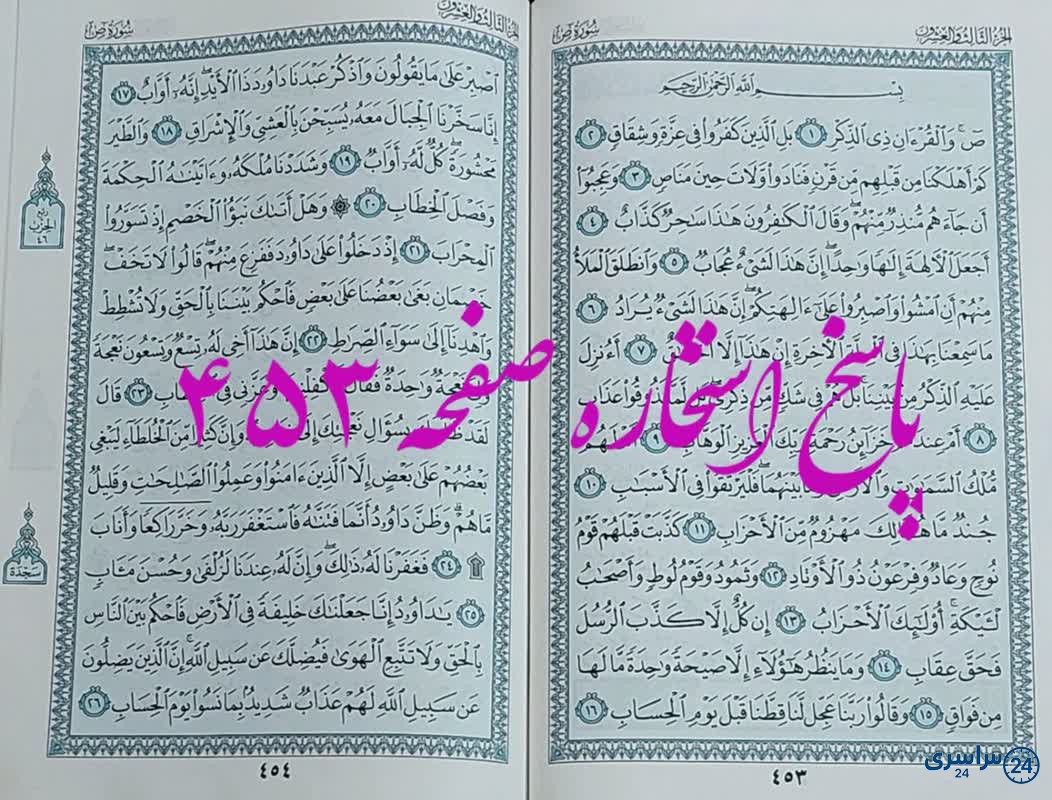 الجزء الثالث والعشرون
سُورَةُ صٓ
بِسْمِ اللَّهِ الرَّحْمَٰنِ الرَّحِيمِ
صٓ ۚ وَالْقُرْءَانِ ذِي الذِّكْرِ ١ بَلِ الَّذِينَ كَفَرُوا فِي عِزَّةٍ وَشِقَاقٍ ٢
كَمْ أَهْلَكْنَا مِن قَبْلِهِم مِّن قَرْنٍ فَنَادَوا وَّلَاتَ حِينَ مَنَاصٍ ٣ وَعَجِبُوا
أَن جَاءَهُم مُّنذِرٌ مِّنْهُمْ ۖ وَقَالَ الْكَافِرُونَ هَٰذَا سَاحِرٌ كَذَّابٌ ٤
أَجَعَلَ الْآلِهَةَ إِلَٰهًا وَاحِدًا ۖ إِنَّ هَٰذَا لَشَيْءٌ عُجَابٌ ٥ وَانطَلَقَ الْمَلَأُ
مِنْهُمْ أَنِ امْشُوا وَاصْبِرُوا عَلَىٰ آلِهَتِكُمْ ۖ إِنَّ هَٰذَا لَشَيْءٌ يُرَادُ ٦
مَا سَمِعْنَا بِهَٰذَا فِي الْآخِرَةِ إِنْ هَٰذَا إِلَّا ٧ أَءُنزِلَ
عَلَيْهِ الذِّكْرُ مِن بَيْنِنَا ۚ بَلْ هُمْ فِي شَكٍّ مِّن ذِكْرِي ۖ بَل لَّمَّا يَذُوقُوا عَذَابِ
٨ أَمْ عِندَهُمْ خَزَائِنُ رَحْمَةِ رَبِّكَ الْعَزِيزِ الْوَهَّابِ ٩ أَمْ لَهُم
مُّلْكُ السَّمَاوَاتِ وَالْأَرْضِ وَمَا بَيْنَهُمَا ۖ فَلْيَرْتَقُوا فِي الْأَسْبَابِ ١٠
جُندٌ مَّا هُنَالِكَ مَهْزُومٌ مِّنَ الْأَحْزَابِ ١١ كَذَّبَتْ قَبْلَهُمْ قَوْمُ
نُوحٍ وَعَادٌ وَفِرْعَوْنُ ذُو الْأَوْتَادِ ١٢ وَثَمُودُ وَقَوْمُ لُوطٍ وَأَصْحَابُ
لْـَٔيْكَةِ ۚ أُولَٰئِكَ الْأَحْزَابُ ١٣ إِن كُلٌّ إِلَّا كَذَّبَ الرُّسُلَ
فَحَقَّ عِقَابِ ١٤ وَمَا يَنظُرُ هَٰؤُلَاءِ إِلَّا صَيْحَةً وَاحِدَةً مَّا لَهَا
مِن فَوَاقٍ ١٥ وَقَالُوا رَبَّنَا عَجِّل لَّنَا قِطَّنَا قَبْلَ يَوْمِ الْحِسَابِ ١٦
٤٥٣
الجزء الثالث والعشرون
سُورَةُ صٓ
اصْبِرْ عَلَىٰ مَا يَقُولُونَ وَاذْكُرْ عَبْدَنَا دَاوُودَ ذَا الْأَيْدِ ۖ إِنَّهُ أَوَّابٌ ١٧
إِنَّا سَخَّرْنَا الْجِبَالَ مَعَهُ يُسَبِّحْنَ بِالْعَشِيِّ وَالْإِشْرَاقِ ١٨ وَالطَّيْرَ
مَحْشُورَةً ۖ كُلٌّ لَّهُ أَوَّابٌ ١٩ وَشَدَدْنَا مُلْكَهُ وَآتَيْنَاهُ الْحِكْمَةَ
وَفَصْلَ الْخِطَابِ ٢٠ ۞ وَهَلْ أَتَاكَ نَبَأُ الْخَصْمِ إِذْ تَسَوَّرُوا
الْمِحْرَابَ ٢١ إِذْ دَخَلُوا عَلَىٰ دَاوُودَ فَفَزِعَ مِنْهُمْ ۖ قَالُوا لَا تَخَفْ ۖ
خَصْمَانِ بَغَىٰ بَعْضُنَا عَلَىٰ بَعْضٍ فَاحْكُم بَيْنَنَا بِالْحَقِّ وَلَا تُشْطِطْ
وَاهْدِنَا إِلَىٰ سَوَاءِ الصِّرَاطِ ٢٢ إِنَّ هَٰذَا أَخِي لَهُ تِسْعٌ وَتِسْعُونَ نَعْجَةً
نَعْجَةٌ وَاحِدَةٌ فَقَالَ أَكْفِلْنِيهَا وَعَزَّنِي فِي الْخِطَابِ ٢٣ قَالَ
لَقَدْ ظَلَمَكَ بِسُؤَالِ نَعْجَتِكَ إِلَىٰ وَإِنَّ كَثِيرًا مِّنَ الْخُلَطَاءِ لَيَبْغِي
بَعْضُهُمْ عَلَىٰ بَعْضٍ إِلَّا الَّذِينَ آمَنُوا وَعَمِلُوا الصَّالِحَاتِ وَقَلِيلٌ
مَّا هُمْ ۗ وَظَنَّ دَاوُودُ أَنَّمَا فَتَنَّاهُ فَاسْتَغْفَرَ رَبَّهُ وَخَرَّ رَاكِعًا وَأَنَابَ
۩ ٢٤ فَغَفَرْنَا لَهُ ذَٰلِكَ ۖ وَإِنَّ لَهُ عِندَنَا لَزُلْفَىٰ وَحُسْنَ مَآبٍ
٢٥ يَا دَاوُودُ إِنَّا جَعَلْنَاكَ خَلِيفَةً فِي الْأَرْضِ فَاحْكُم بَيْنَ النَّاسِ
بِالْحَقِّ وَلَا تَتَّبِعِ الْهَوَىٰ فَيُضِلَّكَ عَن سَبِيلِ اللَّهِ ۚ إِنَّ الَّذِينَ يَضِلُّونَ
عَن سَبِيلِ اللَّهِ لَهُمْ عَذَابٌ شَدِيدٌ بِمَا نَسُوا يَوْمَ الْحِسَابِ ٢٦
٤٥٤
ربع
الحزب
٤٦
سجدة
پاسخ استخاره صفحه ۴۵۳
سراسری 24
24